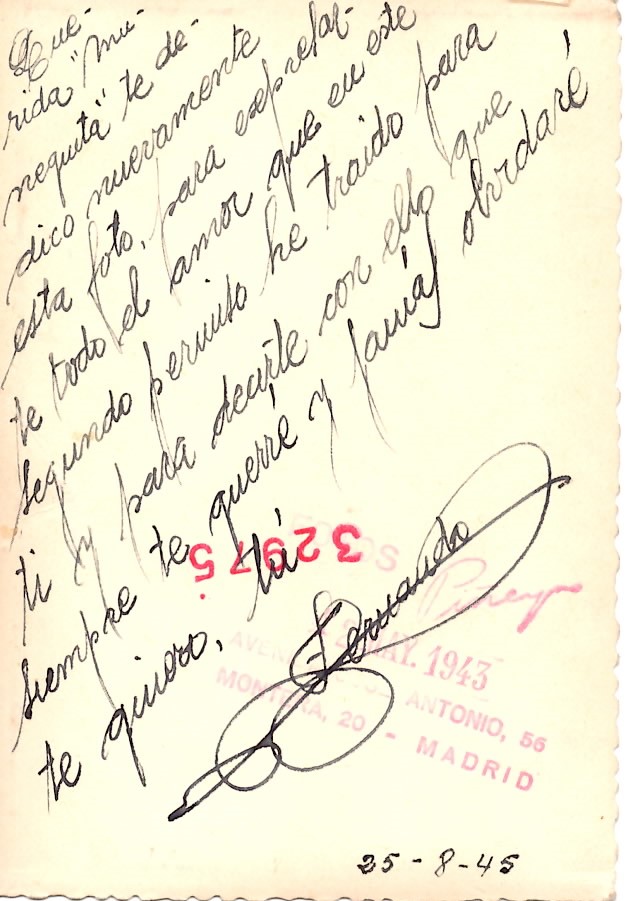 Que-
rida "mu-
ñequita" te de-
dico nuevamente
esta foto, para expresar-
te todo el amor que en este
segundo permiso he traido para
ti y para decirte con ello que
siempre te querré y jamás olvidaré
te quiero. tú
Fernando
32975
FOTOS
2 MAY. 1943
ANTONIO, 56
MONTERA, 20 - MADRID
25-8-45